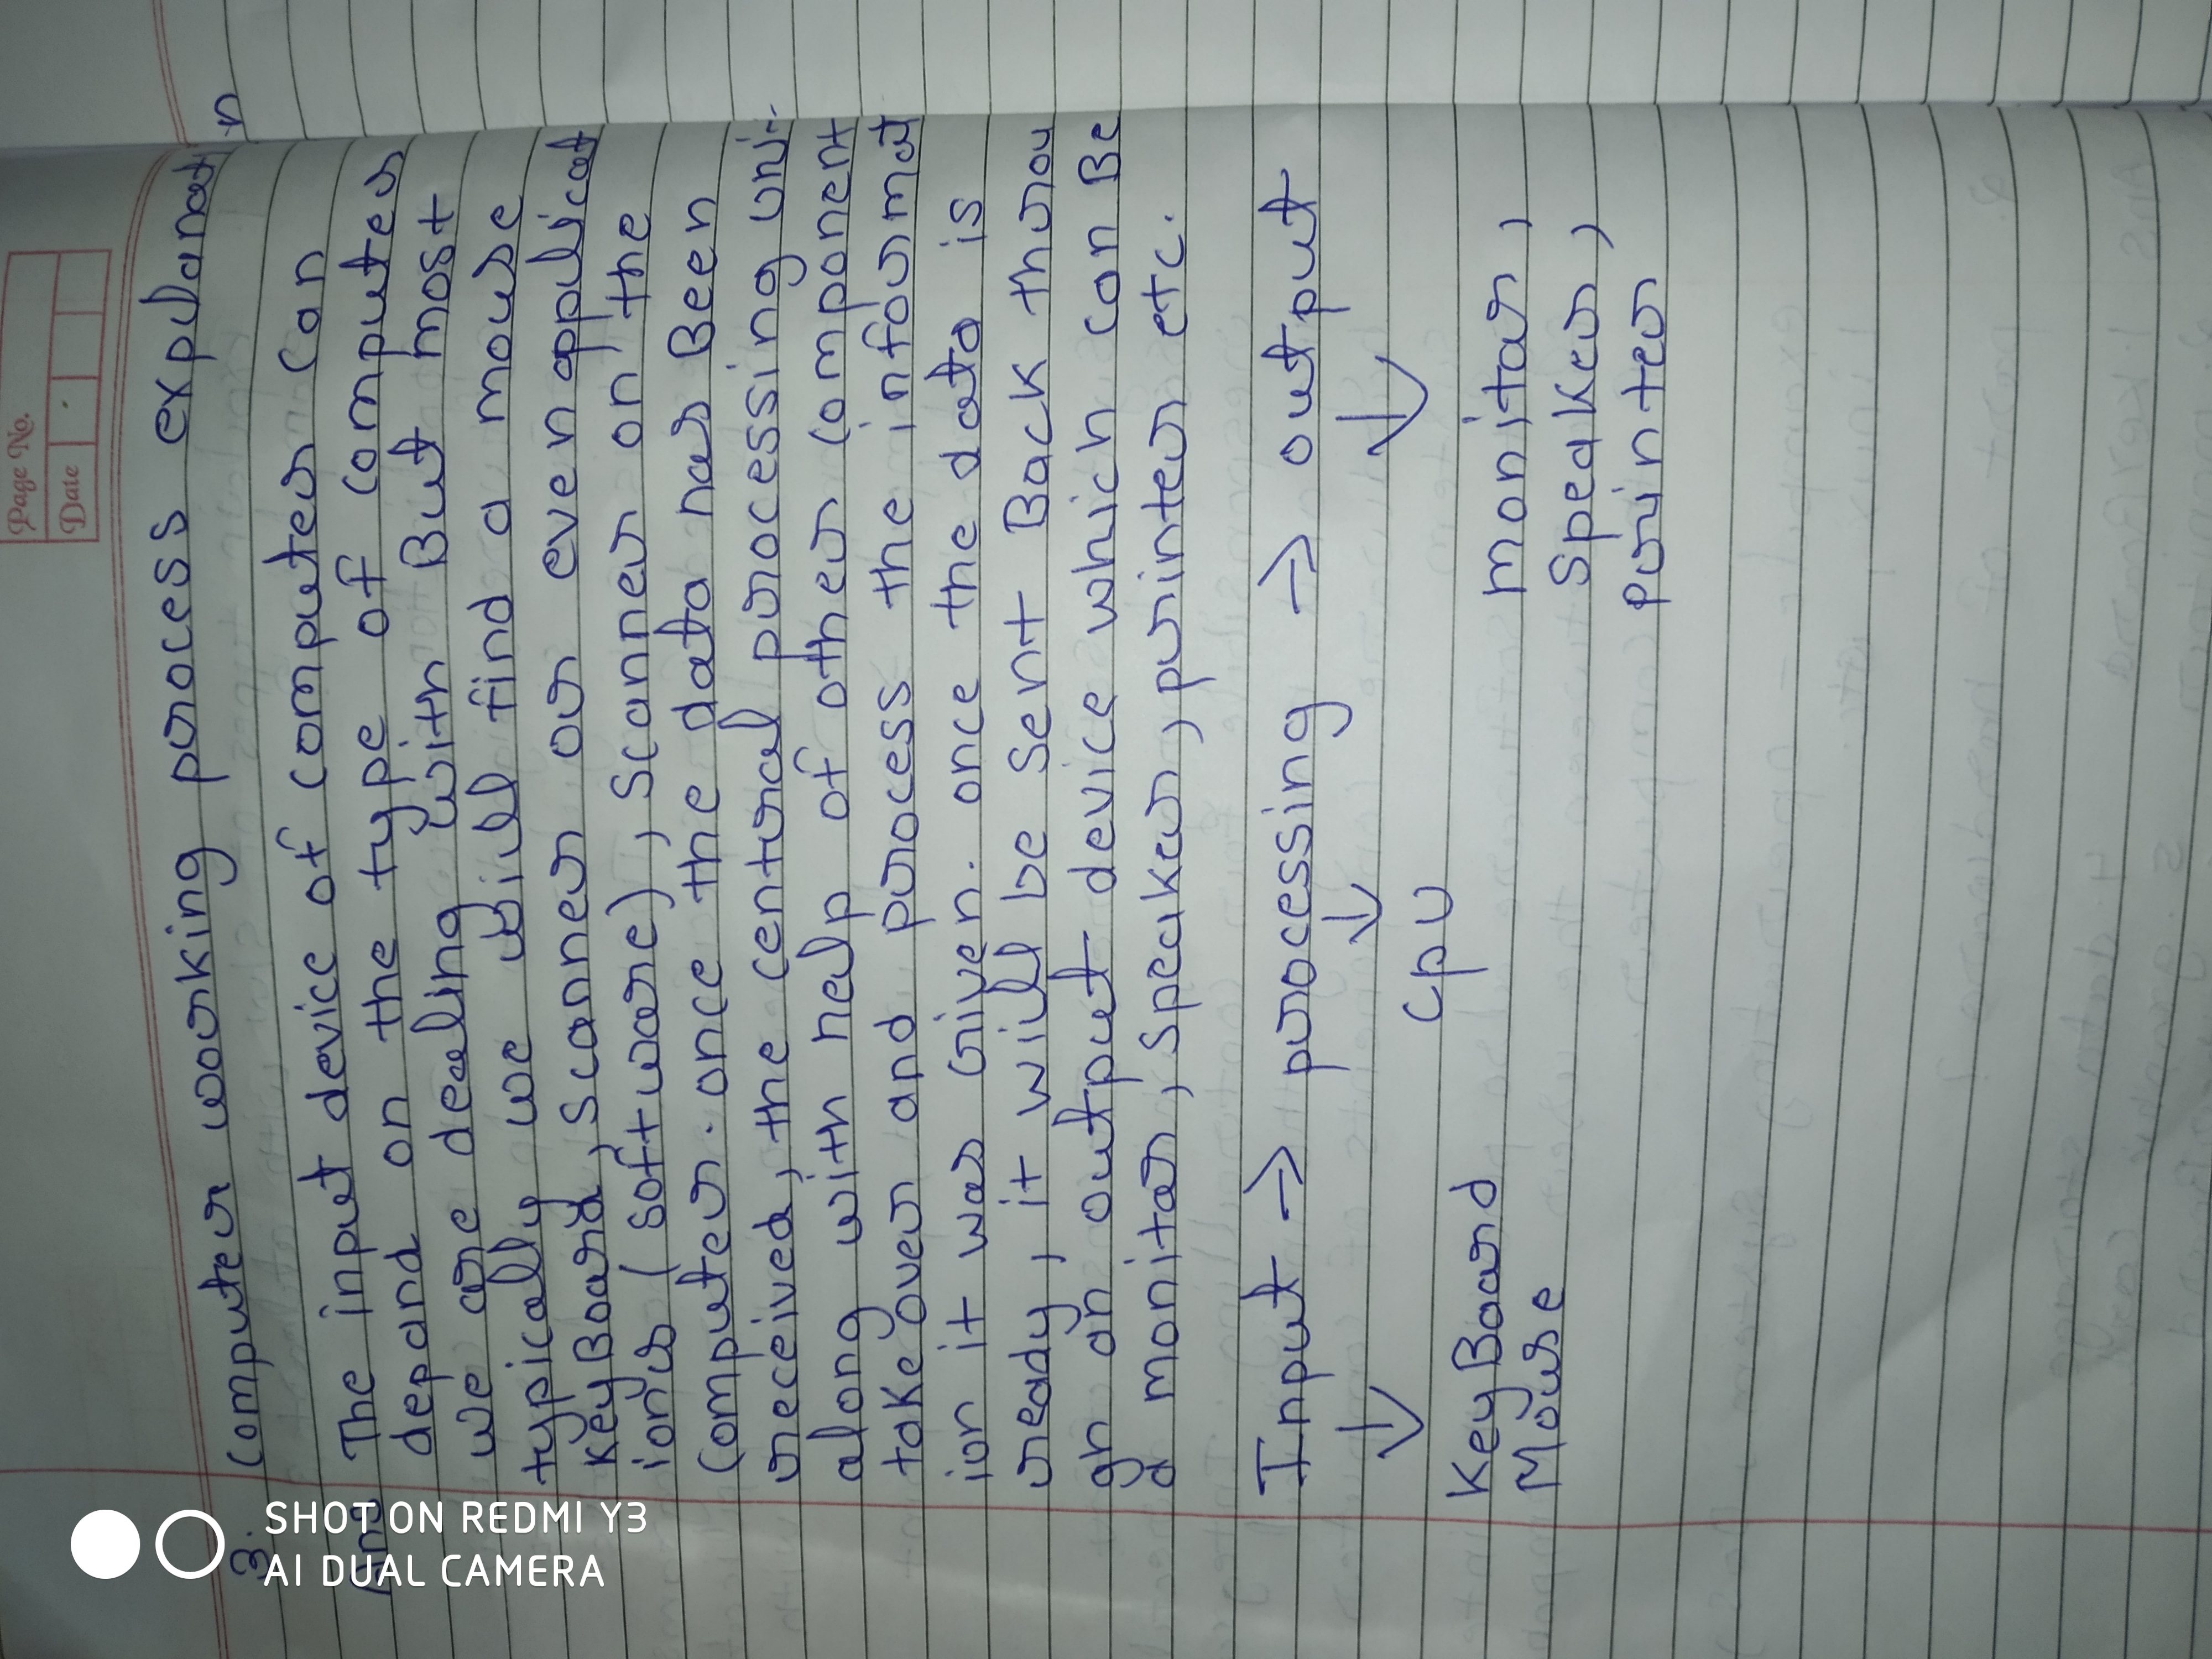 Page No.
Date
3. Computer working process explanati
n
Ans The input device of computer can
depand on the type of computer
we are dealing with But most
typically we will find a mouse
KeyBoard, Scanner or even applicat
ions (software), scanner on the
Computer. once the data has Been
received, the central processing uni-
along with help of other component
take over and process the informat
ion it was Given. once the data is
ready, it will be sent Back throu
gh an output device which can Be
a monitar, speaker, printer etc.
Input → processing → output
↓ ↓ ↓
KeyBoard cpu monitar,
Mouse Speaker,
printer
SHOT ON REDMI Y3
AI DUAL CAMERA